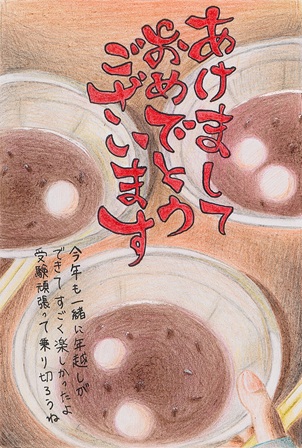 あけまして
おめでとう
ございます
今年も一緒に年越しが
できてすごく楽しかったよ
受験頑張って乗り切ろうね